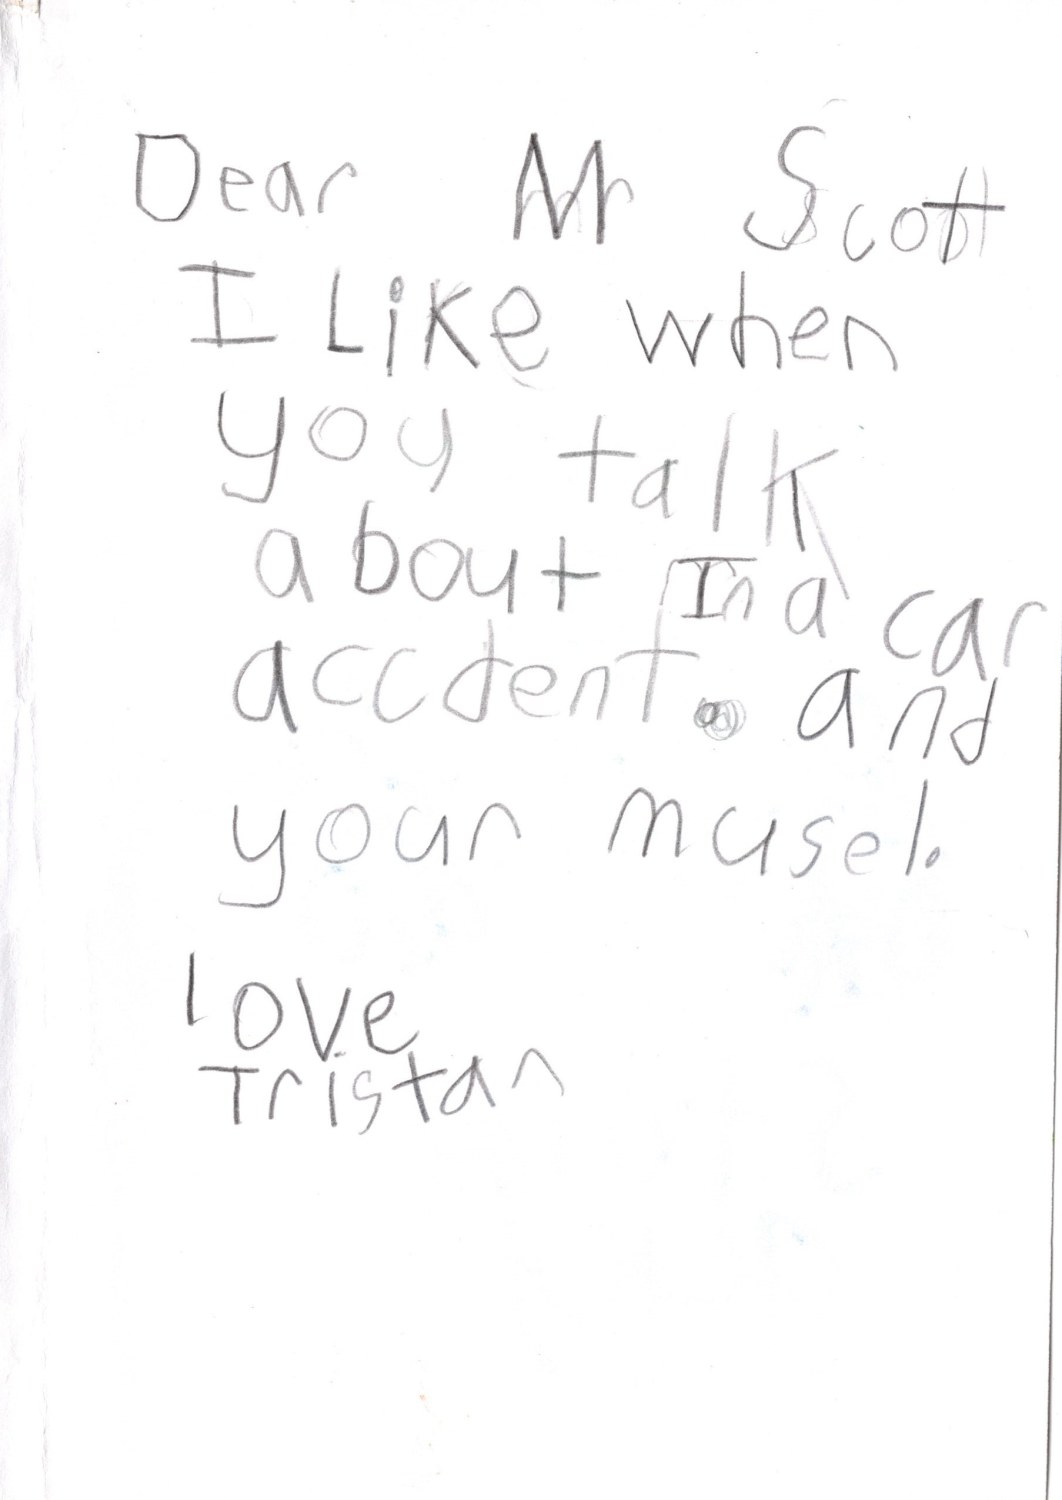 Dear Mr Scott
I Like when
you talk
about In a car
accdent. and
your musel.
love
Tristan